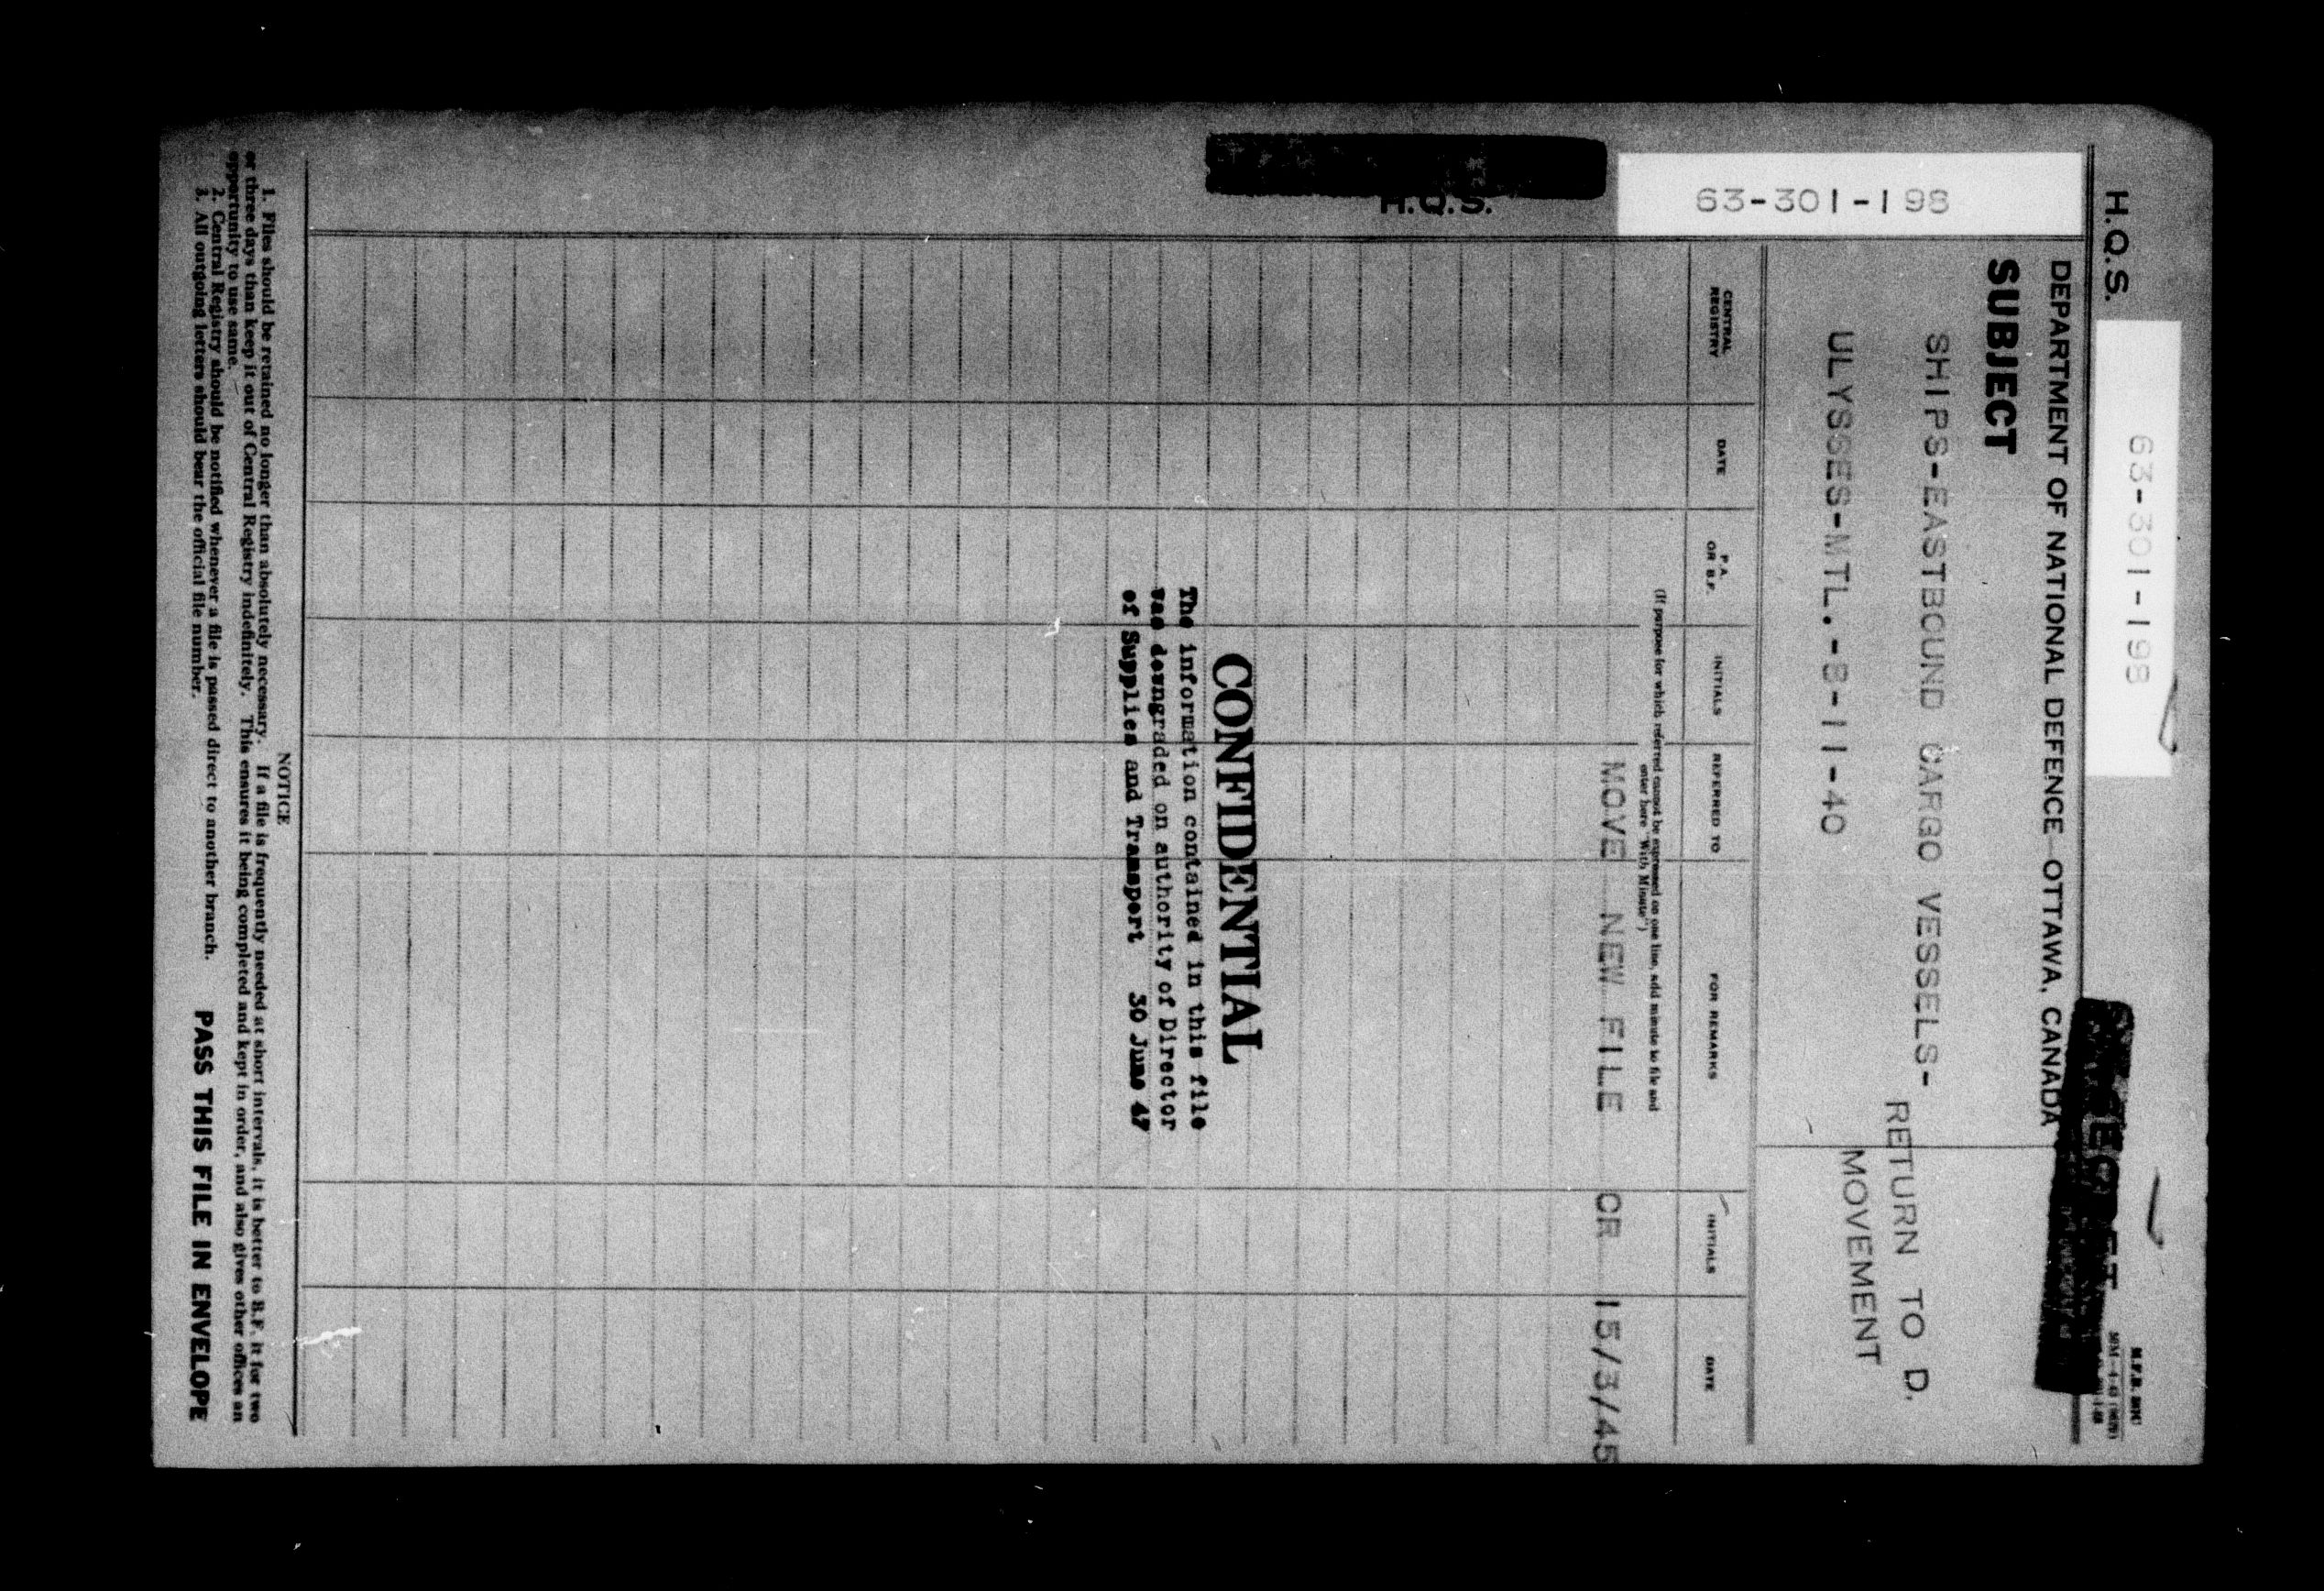 H.Q.S. 63-301-198
DEPARTMENT OF NATIONAL DEFENCE—OTTAWA, CANADA
SUBJECT
SHIPS-EASTBOUND CARGO VESSELS-
ULYSSES-MTL.-8-11-40
RETURN TO D.
MOVEMENT
63-301-198
H.Q.S.
CENTRAL REGISTRY
DATE
P.A. OR B.F.
INITIALS
REFERRED TO
FOR REMARKS
INITIALS
DATE
(If purpose for which referred cannot be expressed on one line, add minute to file and
enter here "With Minute")
MOVE NEW FILE CR 15/3/45
CONFIDENTIAL
The information contained in this file
was downgraded on authority of Director
of Supplies and Transport 30 June 47
NOTICE
1. Files should be retained no longer than absolutely necessary. If a file is frequently needed at short intervals, it is better to B.F. it for two
or three days than keep it out of Central Registry indefinitely. This ensures it being completed and kept in order, and also gives other offices an
opportunity to use same.
2. Central Registry should be notified whenever a file is passed direct to another branch.
3. All outgoing letters should bear the official file number.
PASS THIS FILE IN ENVELOPE